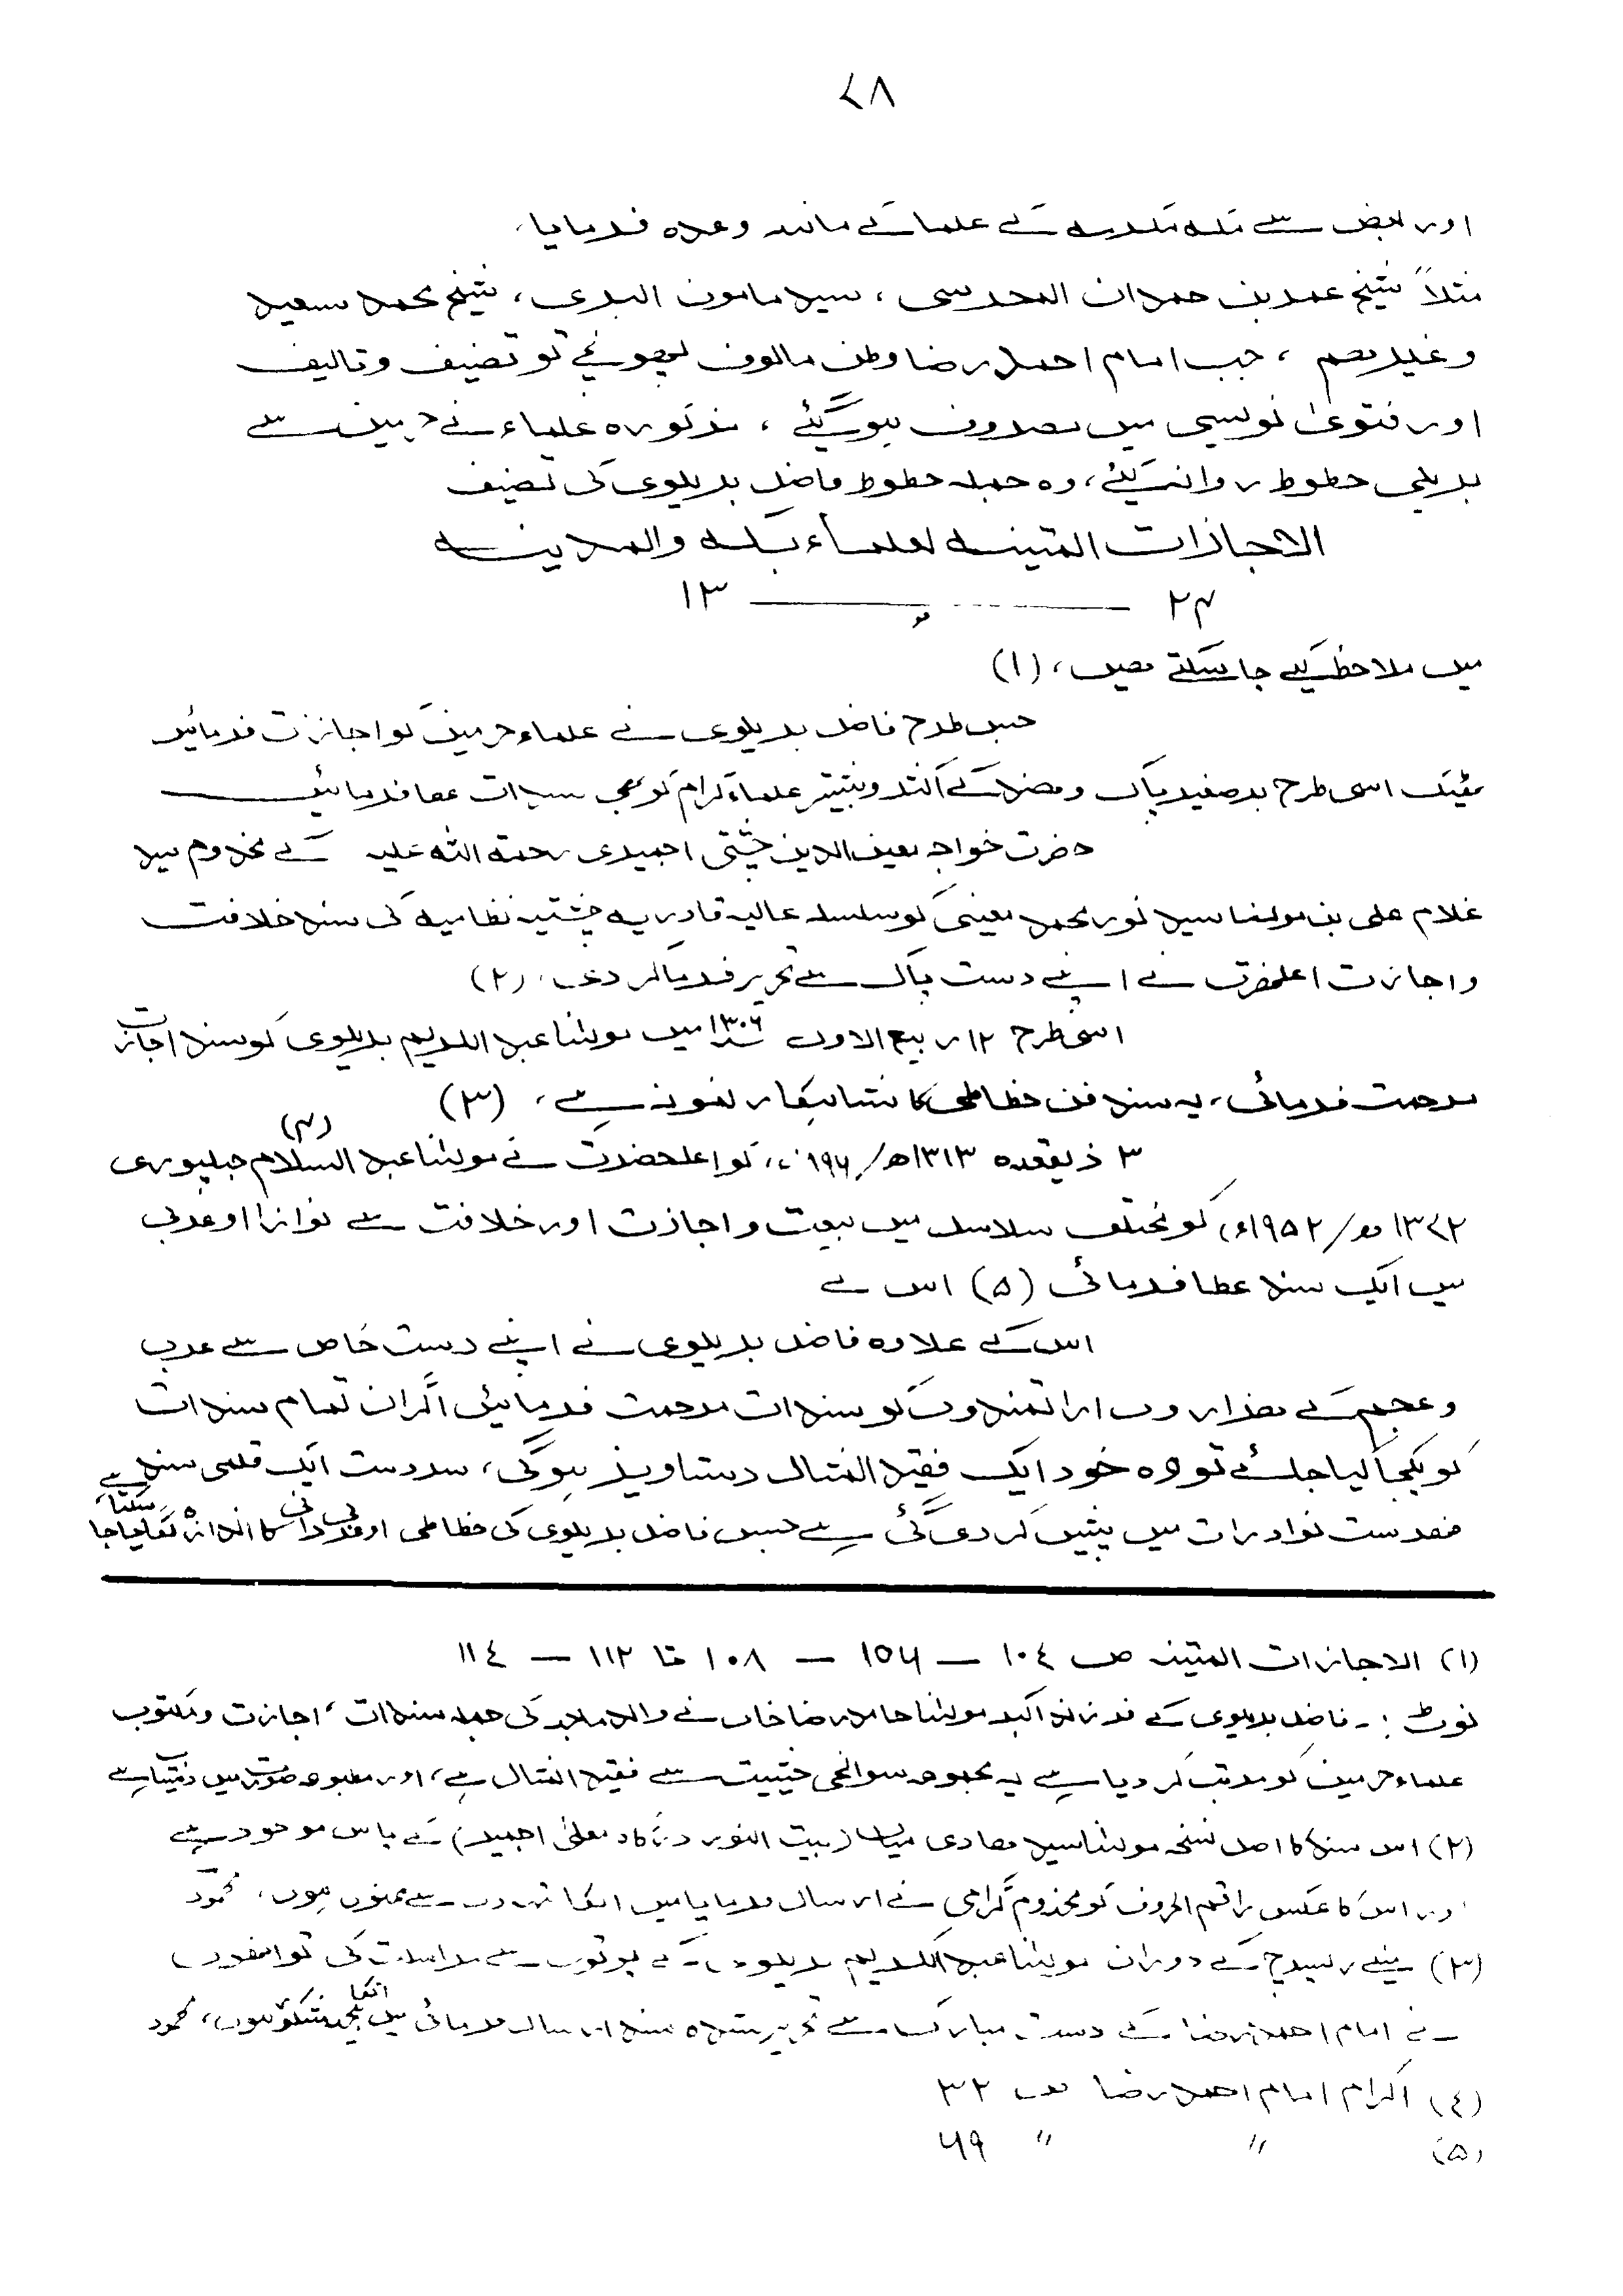 ۷۸
اور بعض سے مکہ مکرمہ کے علما کے مانند وعدہ فرمایا،
مثلاً شیخ عمر بن حمدان المحرسی، سید مامون البری، شیخ محمد سعید
وغیرھم، جب امام احمد رضا وطن مالوف پہونچے تو تصنیف و تالیف
اور فتویٰ نویسی میں مصروف ہوگئے، مذکورہ علماء نے حرمین سے
بریلی خطوط روانہ کیئے، وہ جملہ خطوط فاضل بریلوی کی تصنیف
الاجازات المتینہ لعلماء بکہ والمدینہ
۲۴ ــــــــ ھ ــــــــ ۱۳
میں ملاحظہ کیے جا سکتے ھیں، (۱)
جس طرح فاضل بریلوی نے علماء حرمین کو اجازت فرمائیں
ٹھیک اسی طرح برصغیر پاک وھند کے اکثر و بیشتر علماء کرام کو بھی سندات عطا فرمائیں
حضرت خواجہ معین الدین چشتی اجمیری رحمۃ اللہ علیہ کے مخدوم سید
غلام علی بن مولنا سید نور محمد معینی کو سلسلہ عالیہ قادریہ چشتیہ نظامیہ کی سند خلافت
واجازت اعلحضرت نے اپنے دست پاک سے تحریر فرما کر دی، (۲)
اسی طرح ۱۲ ربیع الاول سنہ ۱۳۰۶ میں مولنا عبد الکریم بریلوی کو سند اجازت
مرحمت فرمائی، یہ سند فن خطاطی کا شاہکار نمونہ ہے، (۳)
۳ ذیقعدہ ۱۳۱۳ھ/۱۹۶ء، کو اعلحضرت نے مولنا عبد السلام جبلپوری (۴)
۱۳۷۲ھ/۱۹۵۲ء) کو مختلف سلاسل میں بیعت و اجازت اور خلافت سے نوازا اور عربی
میں ایک سند عطا فرمائی (۵) اس نے
اس کے علاوہ فاضل بریلوی نے اپنے دست خاص سے عرب
وعجم کے ھزاروں ارادتمندوں کو سندات مرحمت فرمائیں اگر ان تمام سندات
کو یکجا کیا جائے تو وہ خود ایک فقید المثال دستاویز ہوگی، سردست ایک قلمی سند ہے
فھرست نوادرات میں پیش کر دی گئی ہے جس فاضل بریلوی کی خطاطی اور عربی دانی کا اندازہ لگایا جا سکتا
(۱) الاجازات المتینہ ص ۱۰۴ — ۱۵۶ — ۱۰۸ تا ۱۱۲ — ۱۱۴
نوٹ :۔ فاضل بریلوی کے فرزند اکبر مولنا حامد رضا خاں نے والد ماجد کی جملہ سندات، اجازت و مکتوب
علماء حرمین کو مرتب کر دیا ہے یہ مجموعہ سوانحی حیثیت سے فقید المثال ہے، اور مطبوعہ صورت میں دستیاب ہے
(۲) اس سند کا اصل نسخہ مولنا سید ھادی میاں (بیت النور درگاہ معلی اجمیر) کے پاس موجود ہے
اور اس کا عکس راقم الحروف کو مخدوم گرامی نے ارسال فرمایا میں انکا تہہ دل سے ممنوں ہوں، محمود
(۳) میں نے ریسرچ کے دوران مولنا عبد الکریم بریلوی کے پوتوں سے مراسلت کی تو انھوں
نے امام احمد رضا کے دست مبارک سے تحریر شدہ سند ارسال فرمائی میں انکا بیحد مشکور ہوں، محمود
(۴) اکرام امام احمد رضا ص ۳۲
(۵) " " ۶۹